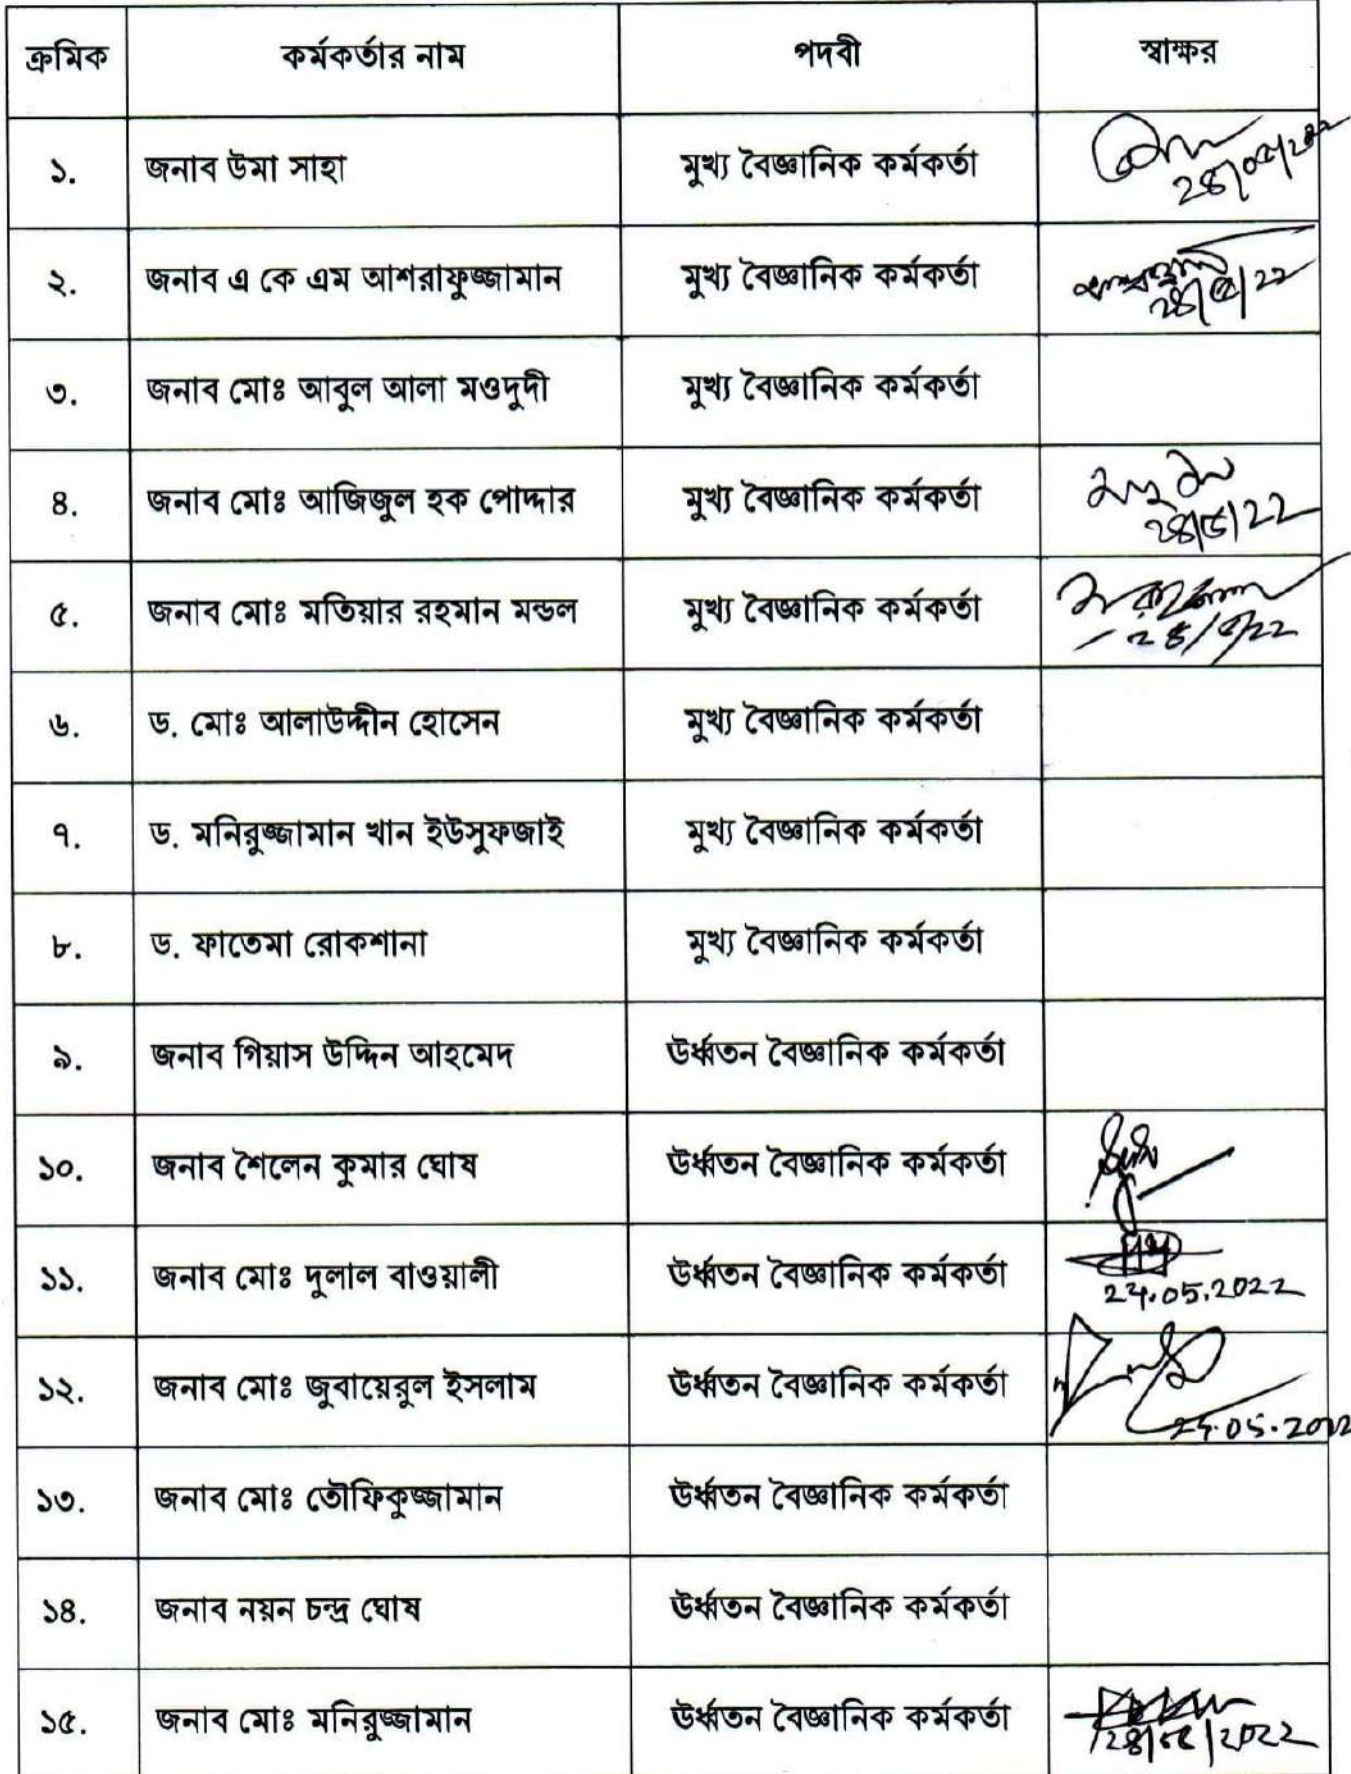 ক্রমিক কর্মকর্তার নাম পদবী স্বাক্ষর
১. জনাব উমা সাহা মুখ্য বৈজ্ঞানিক কর্মকর্তা
২. জনাব এ কে এম আশরাফুজ্জামান মুখ্য বৈজ্ঞানিক কর্মকর্তা
৩. জনাব মোঃ আবুল আলা মওদুদী মুখ্য বৈজ্ঞানিক কর্মকর্তা
৪. জনাব মোঃ আজিজুল হক পোদ্দার মুখ্য বৈজ্ঞানিক কর্মকর্তা
৫. জনাব মোঃ মতিয়ার রহমান মন্ডল মুখ্য বৈজ্ঞানিক কর্মকর্তা
৬. ড. মোঃ আলাউদ্দীন হোসেন মুখ্য বৈজ্ঞানিক কর্মকর্তা
৭. ড. মনিরুজ্জামান খান ইউসুফজাই মুখ্য বৈজ্ঞানিক কর্মকর্তা
৮. ড. ফাতেমা রোকশানা মুখ্য বৈজ্ঞানিক কর্মকর্তা
৯. জনাব গিয়াস উদ্দিন আহমেদ উর্ধ্বতন বৈজ্ঞানিক কর্মকর্তা
১০. জনাব শৈলেন কুমার ঘোষ উর্ধ্বতন বৈজ্ঞানিক কর্মকর্তা
১১. জনাব মোঃ দুলাল বাওয়ালী উর্ধ্বতন বৈজ্ঞানিক কর্মকর্তা
১২. জনাব মোঃ জুবায়েরুল ইসলাম উর্ধ্বতন বৈজ্ঞানিক কর্মকর্তা
১৩. জনাব মোঃ তৌফিকুজ্জামান উর্ধ্বতন বৈজ্ঞানিক কর্মকর্তা
১৪. জনাব নয়ন চন্দ্র ঘোষ উর্ধ্বতন বৈজ্ঞানিক কর্মকর্তা
১৫. জনাব মোঃ মনিরুজ্জামান উর্ধ্বতন বৈজ্ঞানিক কর্মকর্তা